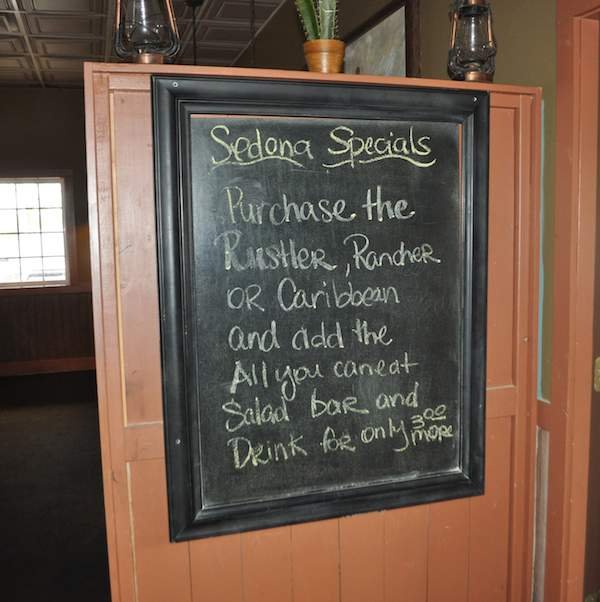 Sedona Specials
Purchase the
Rustler, Rancher
OR Caribbean
and add the
All you can eat
Salad bar and
Drink for only 3.00 more